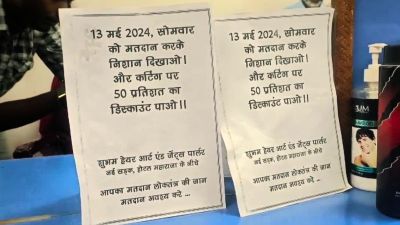 13 मई 2024, सोमवार
को मतदान करके
निशान दिखाओ।
और कटिंग पर
50 प्रतिशत का
डिस्काउंट पाओ।।
शुभम हेयर आर्ट एंड जेंट्स पार्लर
नई सड़क, होटल महाराजा के नीचे
आपका मतदान लोकतंत्र की जान
मतदान अवश्य करें ...
13 मई 2024, सोमवार
को मतदान करके
निशान दिखाओ।
और कटिंग पर
50 प्रतिशत का
डिस्काउंट पाओ।।
शुभम हेयर आर्ट एंड जेंट्स पार्लर
नई सड़क, होटल महाराजा के नीचे
आपका मतदान लोकतंत्र की जान
मतदान अवश्य करें ...